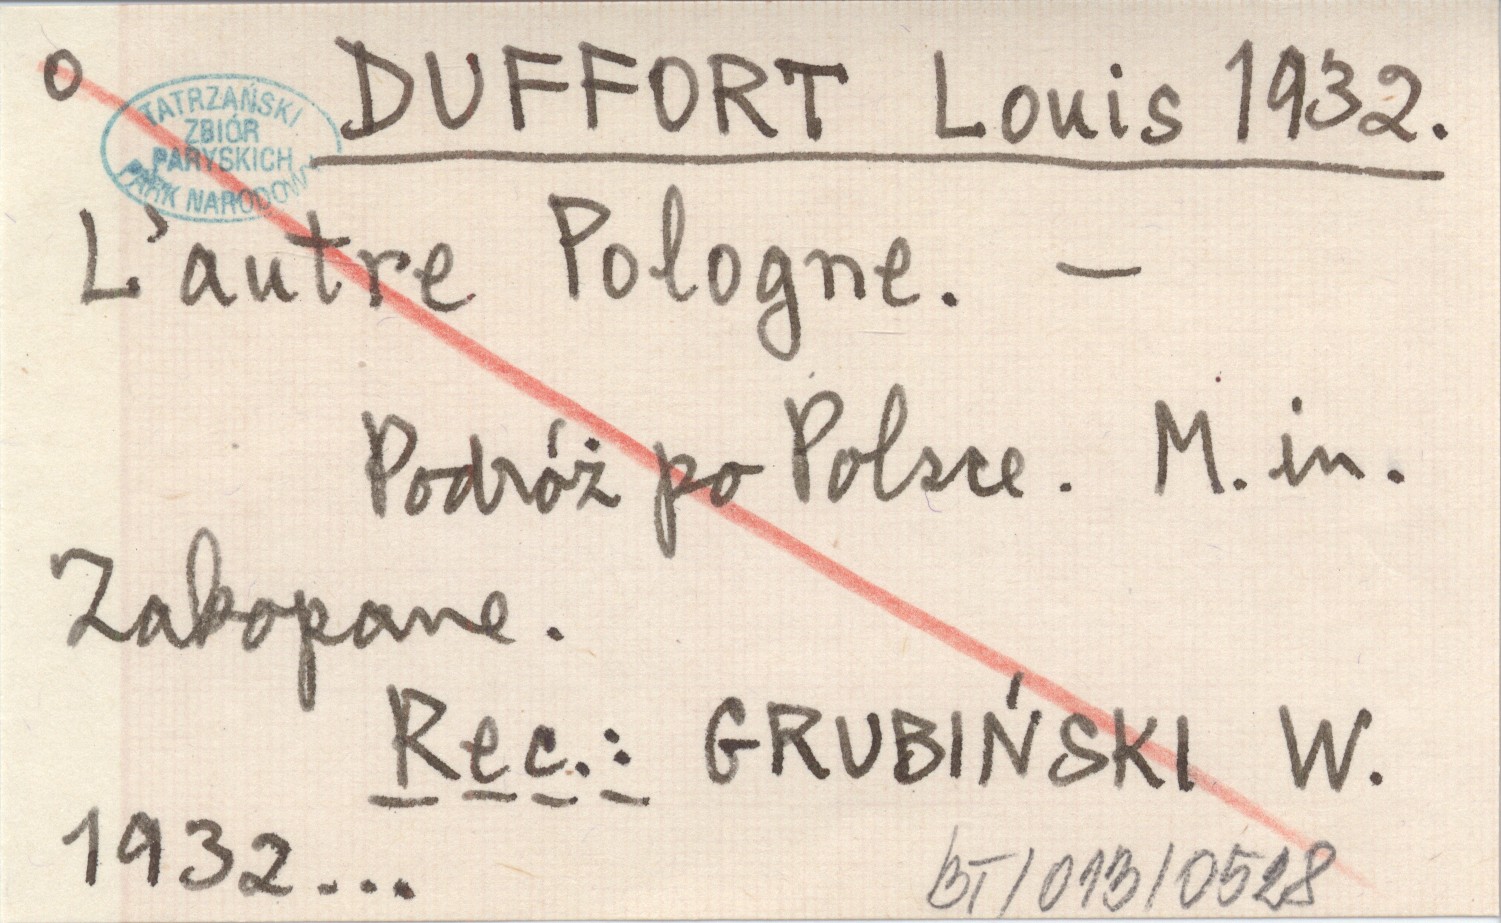 o
TATRZAŃSKI
ZBIÓR
PARYSKICH
PARK NARODOWY
DUFFORT Louis 1932.
L'autre Pologne. —
Podróż po Polsce. M. in.
Zakopane.
Rec.: GRUBIŃSKI W.
1932...
BT/013/0528